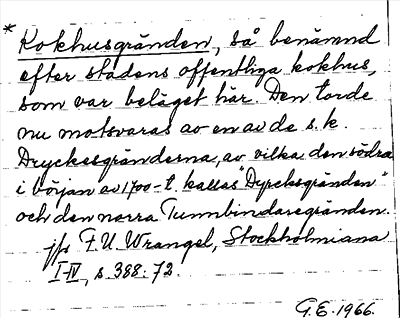 * Kokhusgränden, så benämnd
efter stadens offentliga kokhus,
som var beläget här. Den torde
nu motsvaras av en av de s.k.
Dryckesgränderna, av vilka den södra
i början av 1700-t. kallas "Dyrcksgränden"
och den norra Tunnbindaregränden.
jfr F.U. Wrangel, Stockholmiana
I-IV, s. 388. 72.
G.E. 1966.